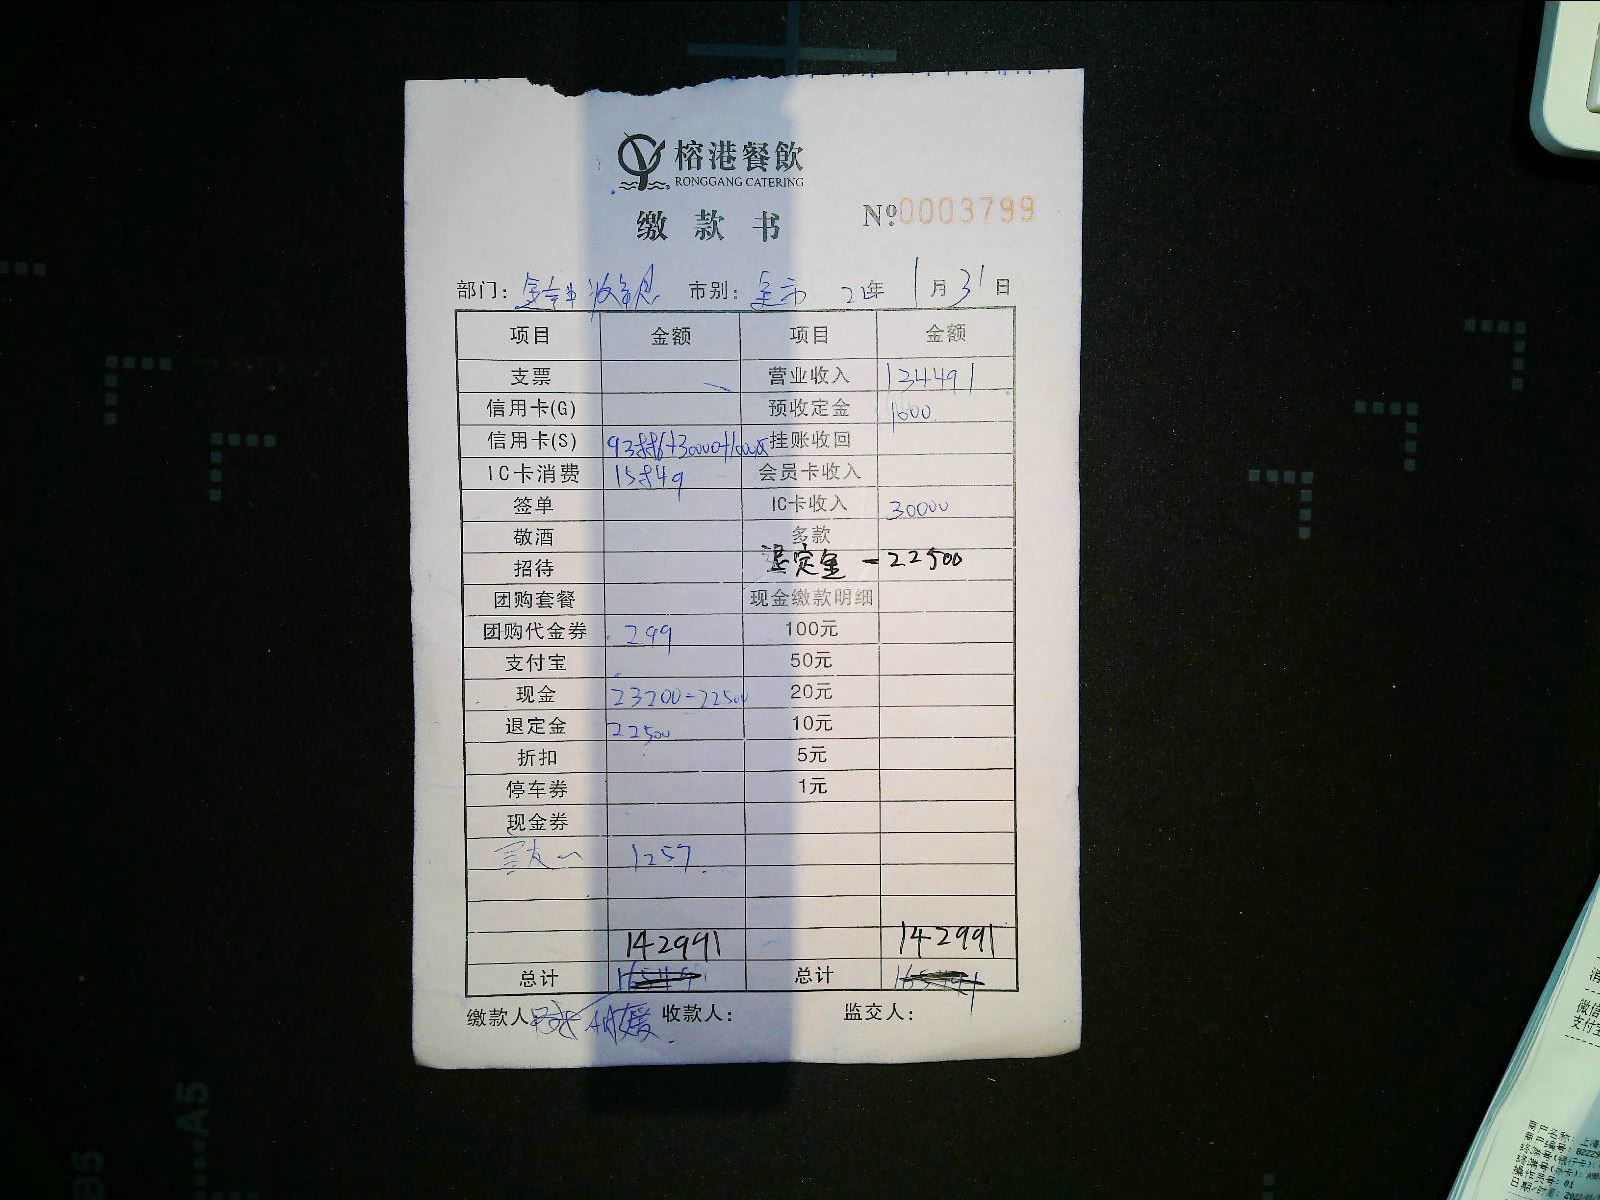 榕港餐飲
RONGGANG CATERING
缴款书
№:0003799
部门: 市别: 全市 22年 1月31日
项目 金额 项目 金额
支票 营业收入 134491
信用卡(G) 预收定金 1600
信用卡(S) 93886+30000+1000 挂账收回
IC卡消费 15849 会员卡收入
签单 IC卡收入 30000
敬酒 多款
招待 退定金 -22500
团购套餐 现金缴款明细
团购代金券 299 100元
支付宝 50元
现金 23200-22500 20元
退定金 22500 10元
折扣 5元
停车券 1元
现金券
1257
142991 142991
总计 165491 总计 165491
缴款人 收款人: 监交人:
A5
B5